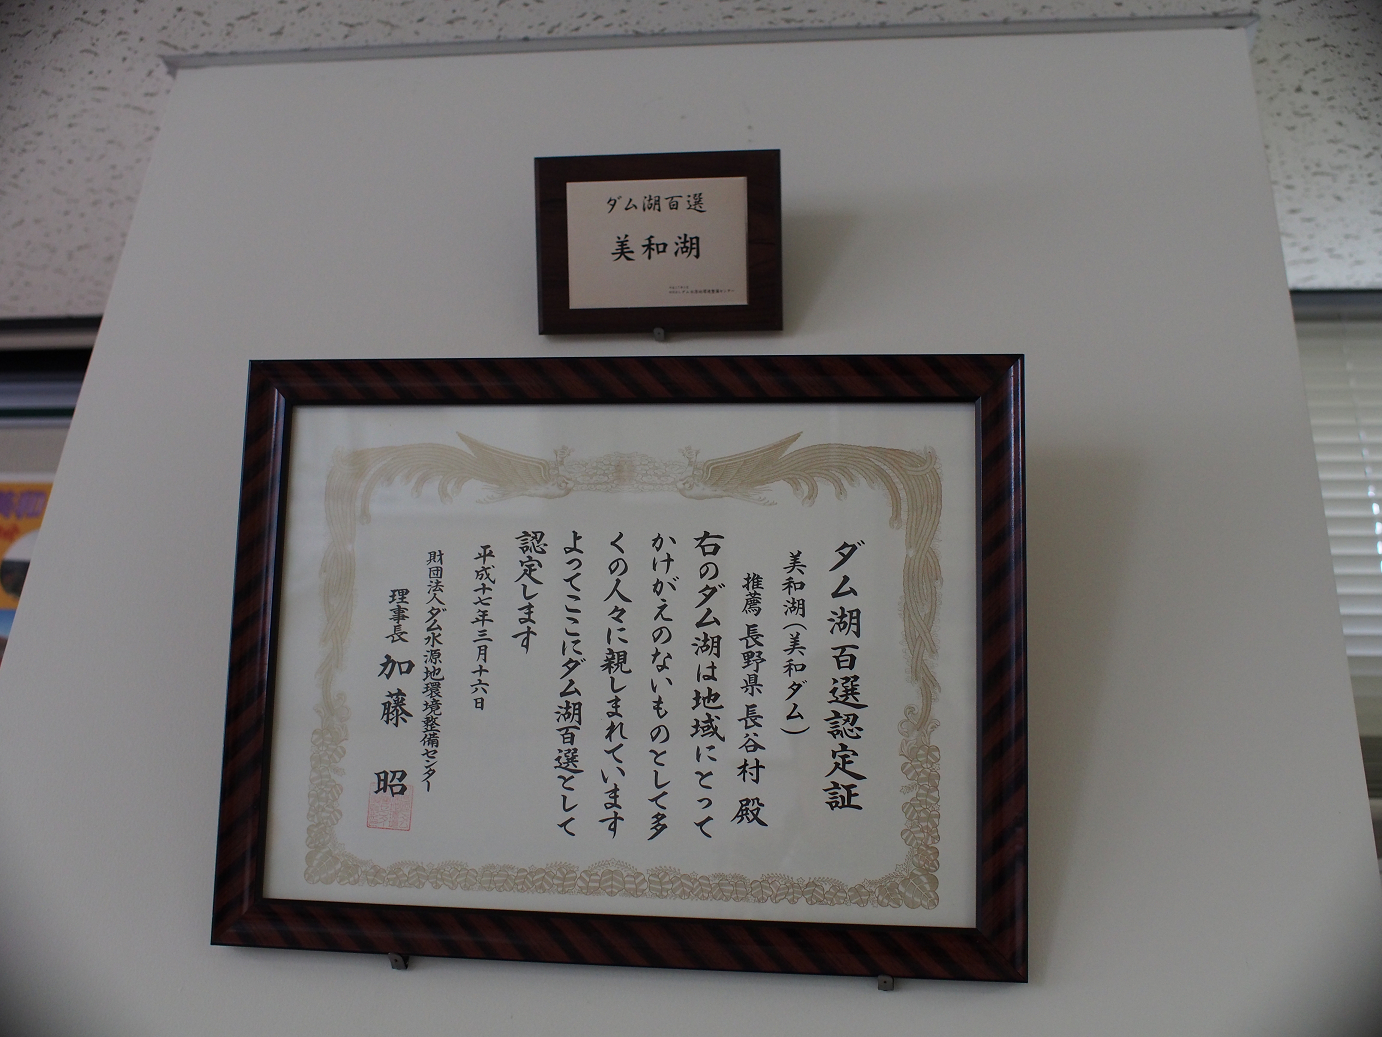 ダム湖百選
美和湖
ダム湖百選認定証
美和湖(美和ダム)
推薦 長野県 長谷村 殿
右のダム湖は地域にとって
かけがえのないものとして多
くの人々に親しまれています
よってここにダム湖百選として
認定します
平成十七年三月十六日
財団法人ダム水源地環境整備センター
理事長 加藤 昭